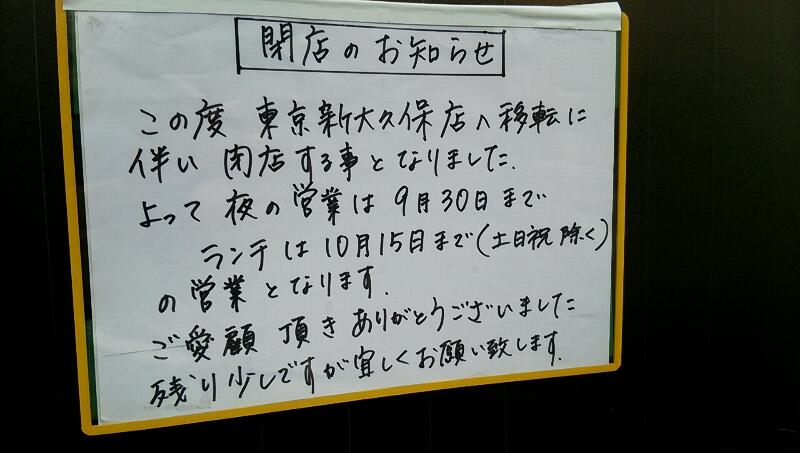 閉店のお知らせ
この度 東京新大久保店へ移転に
伴い 閉店する事となりました.
よって 夜の営業は 9月30日まで
ランチは10月15日まで(土日祝除く)
の営業となります.
ご愛顧 頂き ありがとうございました
残り少しですが宜しくお願い致します.